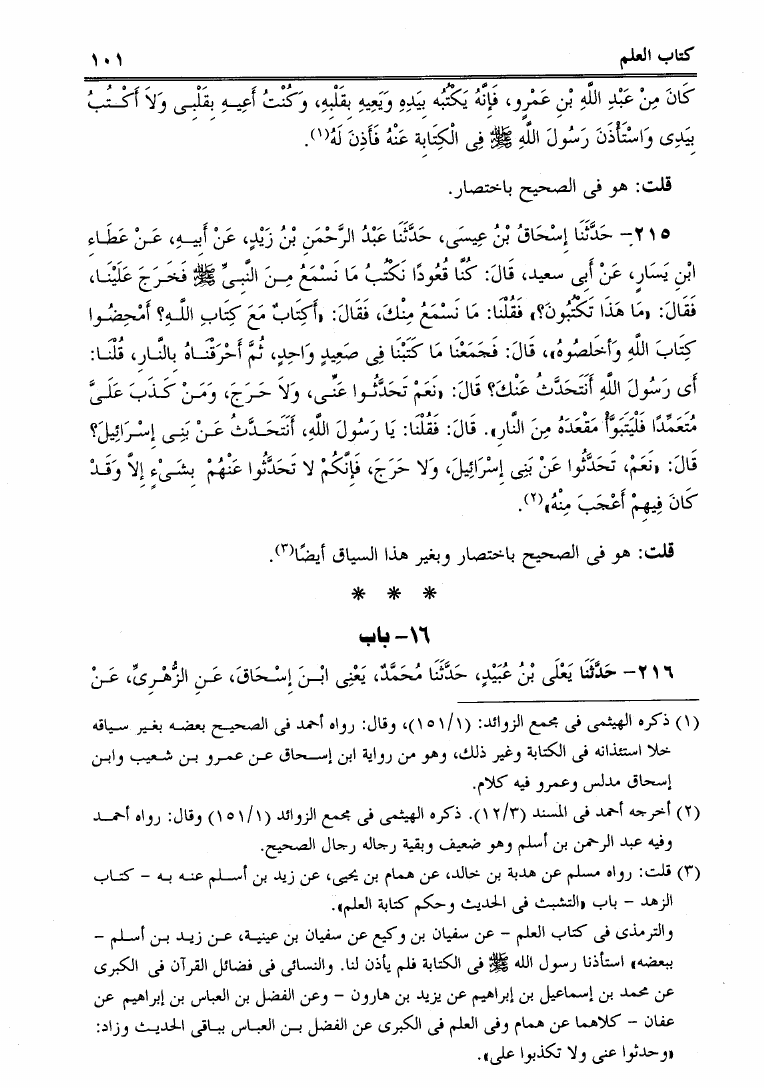 كتاب العلم ١٠١
كَانَ مِنْ عَبْدِ اللَّهِ بْنِ عَمْرٍو، فَإِنَّهُ يَكْتُبُه بِيَدِهِ وَيَعِيهِ بِقَلْبِهِ، وَكُنْتُ أَعِيهِ بِقَلْبِى وَلاَ أَكْتُبُ
بِيَدِى وَاسْتَأْذَنَ رَسُولَ اللَّهِ ﷺ فِى الْكِتَابَةِ عَنْهُ فَأَذِنَ لَهُ(١).
قلت: هو فى الصحيح باختصار.
٢١٥- حَدَّثَنَا إِسْحَاقُ بْنُ عِيسَى، حَدَّثَنَا عَبْدُ الرَّحْمَنِ بْنُ زَيْدٍ، عَنْ أَبِيهِ، عَنْ عَطَاءِ
ابْنِ يَسَارٍ، عَنْ أَبِى سعيد، قَالَ: كُنَّا قُعُودًا نَكْتُبُ مَا نَسْمَعُ مِنَ النَّبِىِّ ﷺ فَخَرَجَ عَلَيْنَا،
فَقَالَ: «مَا هَذَا تَكْتُبُونَ؟» فَقُلْنَا: مَا نَسْمَعُ مِنْكَ، فَقَالَ: «أَكِتَابٌ مَعَ كِتَابِ اللَّهِ؟ أَمْحِضُوا
كِتَابَ اللَّهِ وَأَخلَصُوهُ»، قَالَ: فَجَمَعْنَا مَا كَتَبْنَا فِى صَعِيدٍ وَاحِدٍ، ثُمَّ أَحْرَقْنَاهُ بِالنَّارِ، قُلْنَا:
أَى رَسُولَ اللَّهِ أَنَتَحَدَّثُ عَنْكَ؟ قَالَ: «نَعَمْ تَحَدَّثُوا عَنِّى، وَلاَ حَرَجَ، وَمَنْ كَذَبَ عَلَىَّ
مُتَعَمِّدًا فَلْيَتَبَوَّأْ مَقْعَدَهُ مِنَ النَّارِ». قَالَ: فَقُلْنَا: يَا رَسُولَ اللَّهِ، أَنَتَحَدَّثُ عَنْ بَنِى إِسْرَائِيلَ؟
قَالَ: «نَعَمْ، تَحَدَّثُوا عَنْ بَنِى إِسْرَائِيلَ، وَلا حَرَجَ، فَإِنَّكُمْ لا تَحَدَّثُوا عَنْهُمْ بِشَىْءٍ إِلاَّ وَقَدْ
كَانَ فِيهِمْ أَعْجَبَ مِنْهُ»(٢).
قلت: هو فى الصحيح باختصار وبغير هذا السياق أيضًا(٣).
* * *
١٦- باب
٢١٦- حَدَّثَنَا يَعْلَى بْنُ عُبَيْدٍ، حَدَّثَنَا مُحَمَّدٌ، يَعْنِى ابْنَ إِسْحَاقَ، عَنِ الزُّهْرِىِّ، عَنْ
(١) ذكره الهيثمى فى مجمع الزوائد: (١٥١/١)، وقال: رواه أحمد فى الصحيح بعضه بغير سياقه
خلا استئذانه فى الكتابة وغير ذلك، وهو من رواية ابن إسحاق عن عمرو بن شعيب وابن
إسحاق مدلس وعمرو فيه كلام.
(٢) أخرجه أحمد فى المسند (١٢/٣). ذكره الهيثمى فى مجمع الزوائد (١٥١/١) وقال: رواه أحمد
وفيه عبد الرحمن بن أسلم وهو ضعيف وبقية رجاله رجال الصحيح.
(٣) قلت: رواه مسلم عن هدبة بن خالد، عن همام بن يحيى، عن زيد بن أسلم عنه به - كتاب
الزهد - باب «التشبث فى الحديث وحكم كتابة العلم».
والترمذى فى كتاب العلم - عن سفيان بن وكيع عن سفيان بن عينية، عن زيد بن أسلم -
ببعضه» استأذنا رسول الله ﷺ فى الكتابة فلم يأذن لنا. والنسائى فى فضائل القرآن فى الكبرى
عن محمد بن إسماعيل بن إبراهيم عن يزيد بن هارون - وعن الفضل بن العباس بن إبراهيم عن
عفان - كلاهما عن همام وفى العلم فى الكبرى عن الفضل بن العباس بباقى الحديث وزاد:
«وحدثوا عنى ولا تكذبوا على».